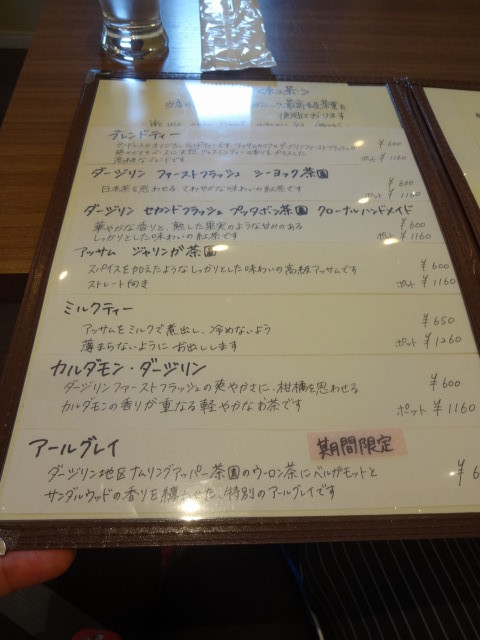 <紅茶>
最高級茶葉を
使用しております
ブレンドティー
¥600
ポット ¥1160
ダージリン ファーストフラッシュ シーヨック茶園
日本茶を思わせる、さわやかな味わいの紅茶です
¥600
ポット ¥1160
ダージリン セカンドフラッシュ プッタボン茶園 クローナルハンドメイド
華やかな香りと、熟した果実のような甘みのある
しっかりとした味わいの紅茶です
¥600
ポット ¥1160
アッサム ジャリンガ茶園
スパイスを加えたようなしっかりとした味わいの高級アッサムです
ストレート向き
¥600
ポット ¥1160
ミルクティー
アッサムをミルクで煮出し、冷めないよう
薄まらないように お出しします
¥650
ポット ¥1260
カルダモン・ダージリン
ダージリンファーストフラッシュの爽やかさに、柑橘を思わせる
カルダモンの香りが重なる軽やかなお茶です
¥600
ポット ¥1160
アールグレイ 期間限定
ダージリン地区ナムリングアッパー茶園のウーロン茶にベルガモットと
サンダルウッドの香りを纏わせた、特別のアールグレイです
¥6